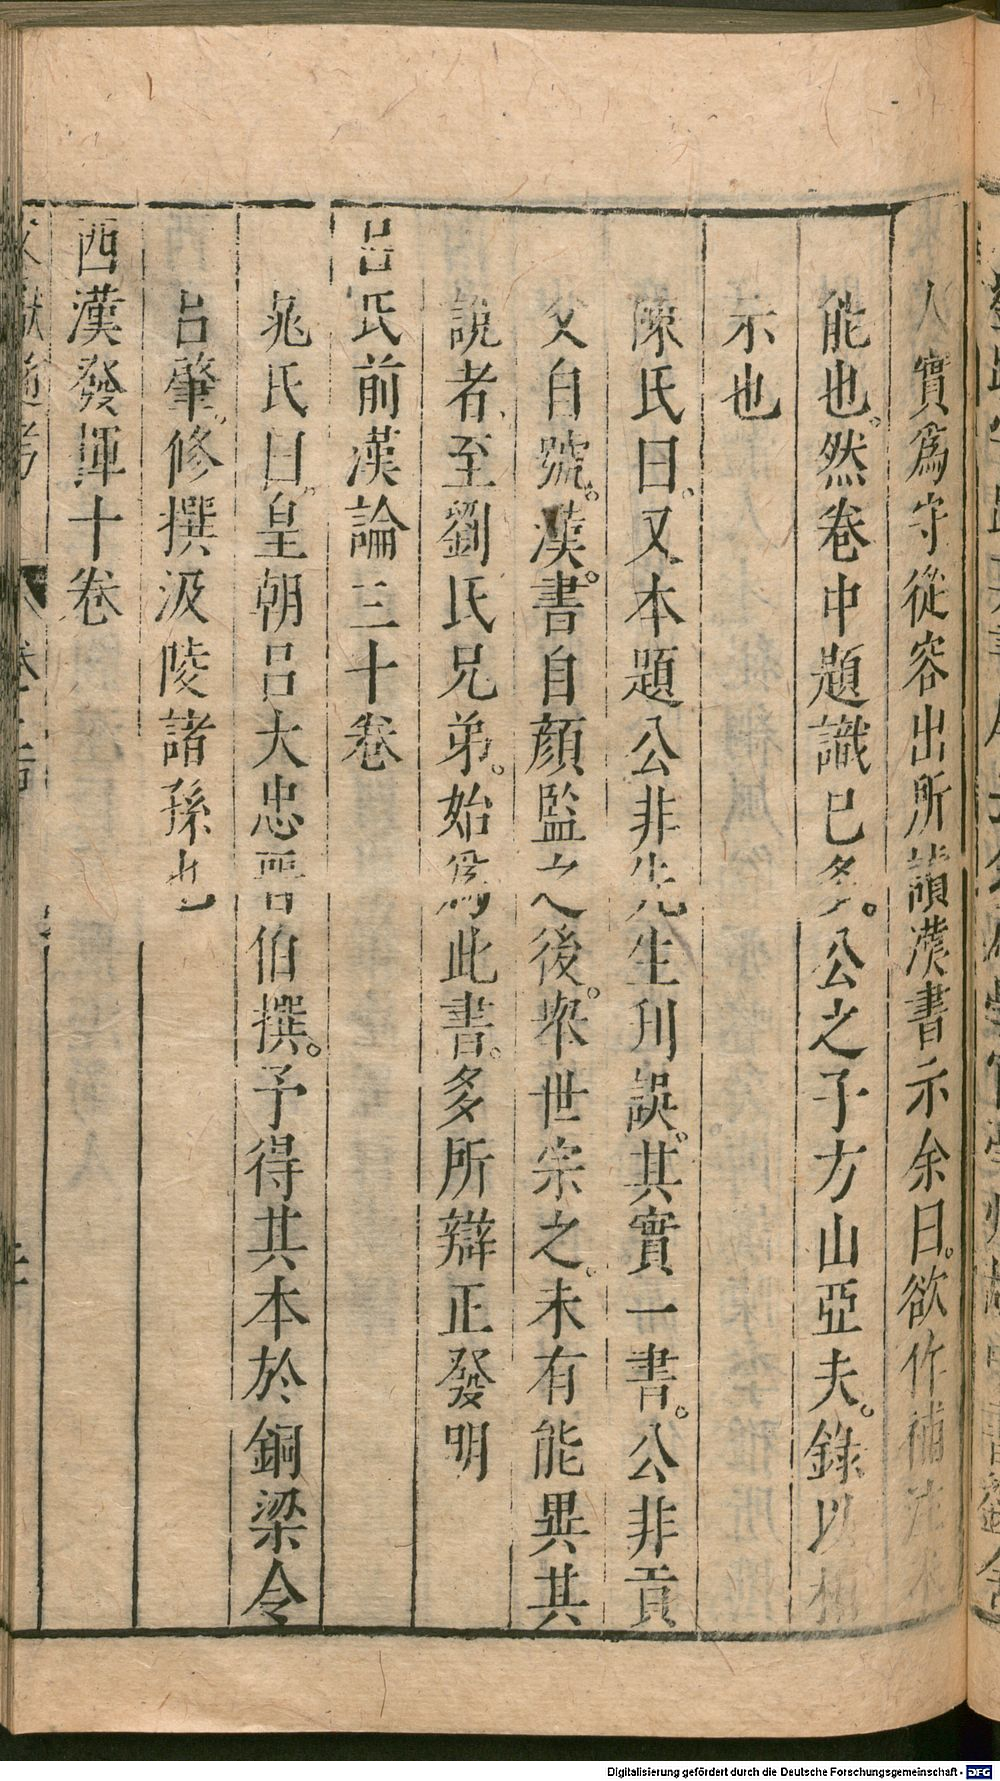 人實為守從容出所讀漢書示余曰欲作補注未
能也然卷中題識已多公之子方山亞夫錄以相
示也
陳氏曰又本題公非先生刊誤其實一書公非貢
父自號漢書自顏監之後衆世宗之未有能異其
說者至劉氏兄弟始爲此書多所辯正發明
呂氏前漢論三十卷
晁氏曰皇朝呂大忠晉伯撰予得其本於銅梁令
呂肇修撰汲陵諸孫也
西漢發揮十卷
文獻通考 卷二百
Digitalisierung gefördert durch die Deutsche Forschungsgemeinschaft - DFG